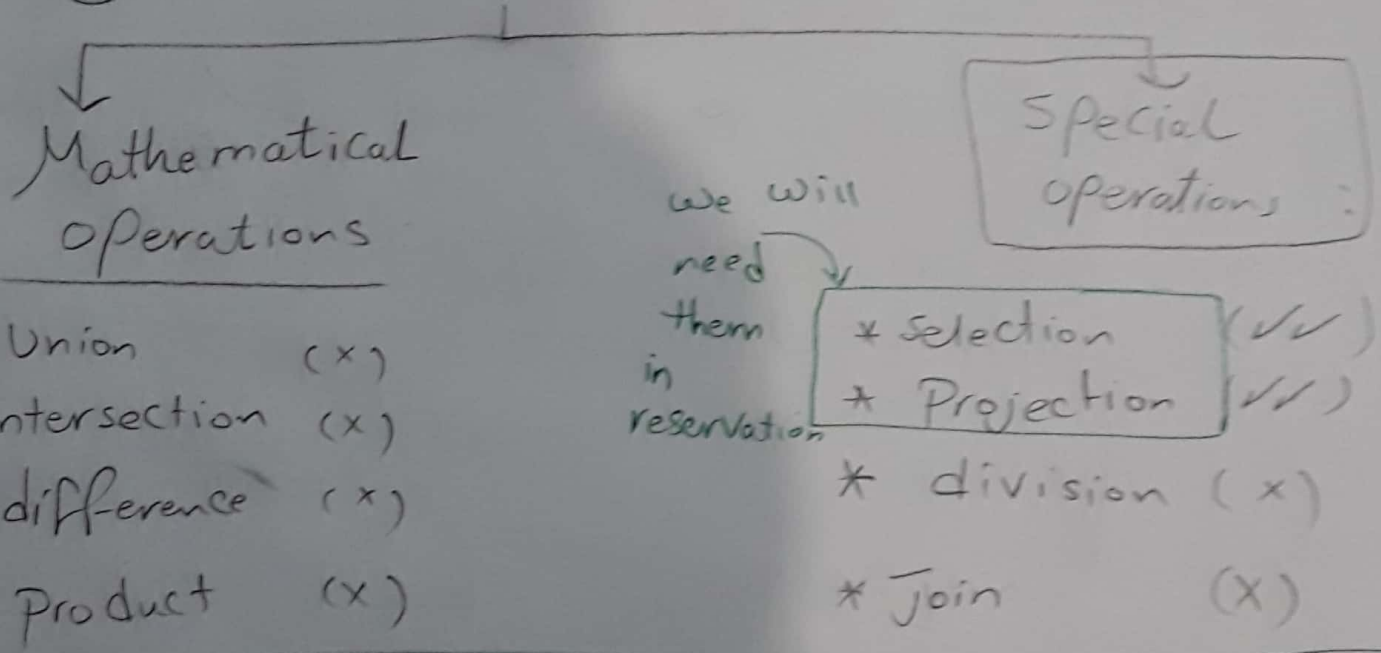 Mathematical
operations
Union (x)
ntersection (x)
difference (x)
Product (x)
we will
need
them
in
reservation
Special
operations :
* Selection (✓✓)
* Projection (✓✓)
* division (x)
* Join (x)